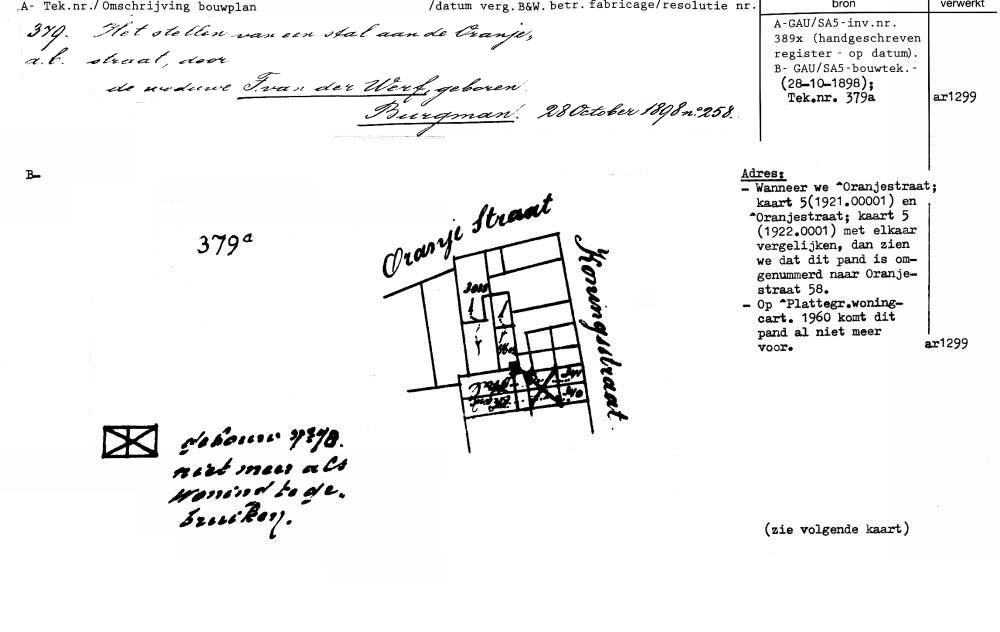 A- Tek.nr./Omschrijving bouwplan /datum verg.B&W. betr. fabricage/resolutie nr. bron verwerkt
379. Het stellen van een stal aan de Oranje,
a.b. straat, door
de weduwe F. van der Werf, geboren
Burgman. 28 October 1898 no 258.
A-GAU/SA5-inv.nr.
389x (handgeschreven
register - op datum).
B- GAU/SA5-bouwtek.-
(28-10-1898);
Tek.nr. 379a ar1299
B-
379a
Oranje Straat
Koningsstraat
gebouw
niet meer als
te ge.
bruiken.
Adres:
- Wanneer we ^Oranjestraat;
kaart 5(1921.00001) en
^Oranjestraat; kaart 5
(1922.0001) met elkaar
vergelijken, dan zien
we dat dit pand is om-
genummerd naar Oranje-
straat 58.
- Op ^Plattegr.woning-
cart. 1960 komt dit
pand al niet meer
voor. ar1299
(zie volgende kaart)